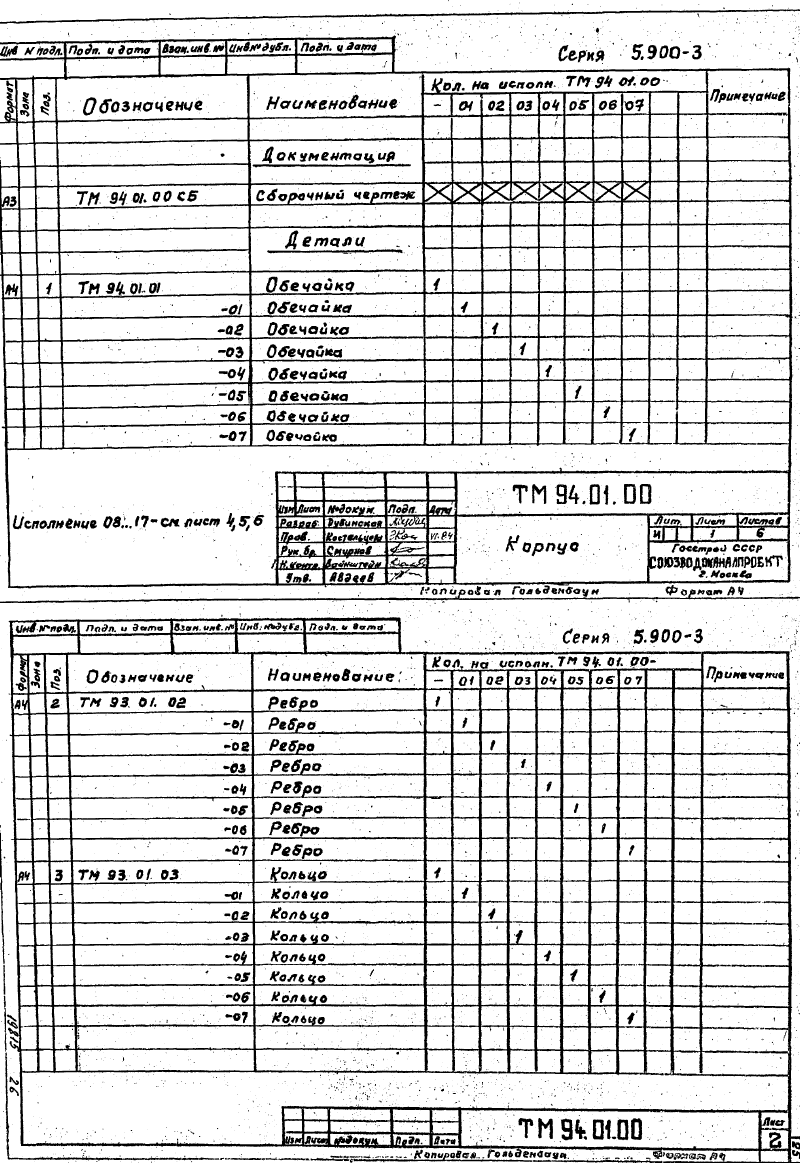 Серия 5.900-3
Инв № подл. Подп. и дата Взам.инв.№ Инв№дубл. Подп. и дата
Формат Зона Поз. Обозначение Наименование Кол. на исполн. ТМ 94 01.00 Примечание
- 01 02 03 04 05 06 07
Документация
А3 ТМ 94 01.00 СБ Сборочный чертеж
Детали
А4 1 ТМ 94.01.01 Обечайка 1
-01 Обечайка 1
-02 Обечайка 1
-03 Обечайка 1
-04 Обечайка 1
-05 Обечайка 1
-06 Обечайка 1
-07 Обечайка 1
Исполнение 08...17-см лист 4,5,6
ТМ 94.01.00
Изм Лист №докум. Подп. Дата
Разраб Дубинская
Пров. VI.84
Рук.бр. Смирнов
Н.контр.
Утв. Авдеев
Корпус
Лит. Лист Листов
И 1 6
Госстрой СССР
СОЮЗВОДОКАНАЛПРОЕКТ
г. Москва
Копировал Гольденбаум Формат А4
Инв.№подл. Подп. и дата Взам.инв.№ Инв.№дубл. Подп. и дата
Серия 5.900-3
Формат Зона Поз. Обозначение Наименование Кол. на исполн. ТМ 94. 01.00- Примечание
- 01 02 03 04 05 06 07
А4 2 ТМ 93. 01. 02 Ребро 1
-01 Ребро 1
-02 Ребро 1
-03 Ребро 1
-04 Ребро 1
-05 Ребро 1
-06 Ребро 1
-07 Ребро 1
А4 3 ТМ 93. 01 03 Кольцо 1
-01 Кольцо 1
-02 Кольцо 1
-03 Кольцо 1
-04 Кольцо 1
-05 Кольцо 1
-06 Кольцо 1
-07 Кольцо 1
19815 26
ТМ 94.01.00
Лист
2
Изм Лист №докум. Подп. Дата
Копировал Гольденбаум Формат А4